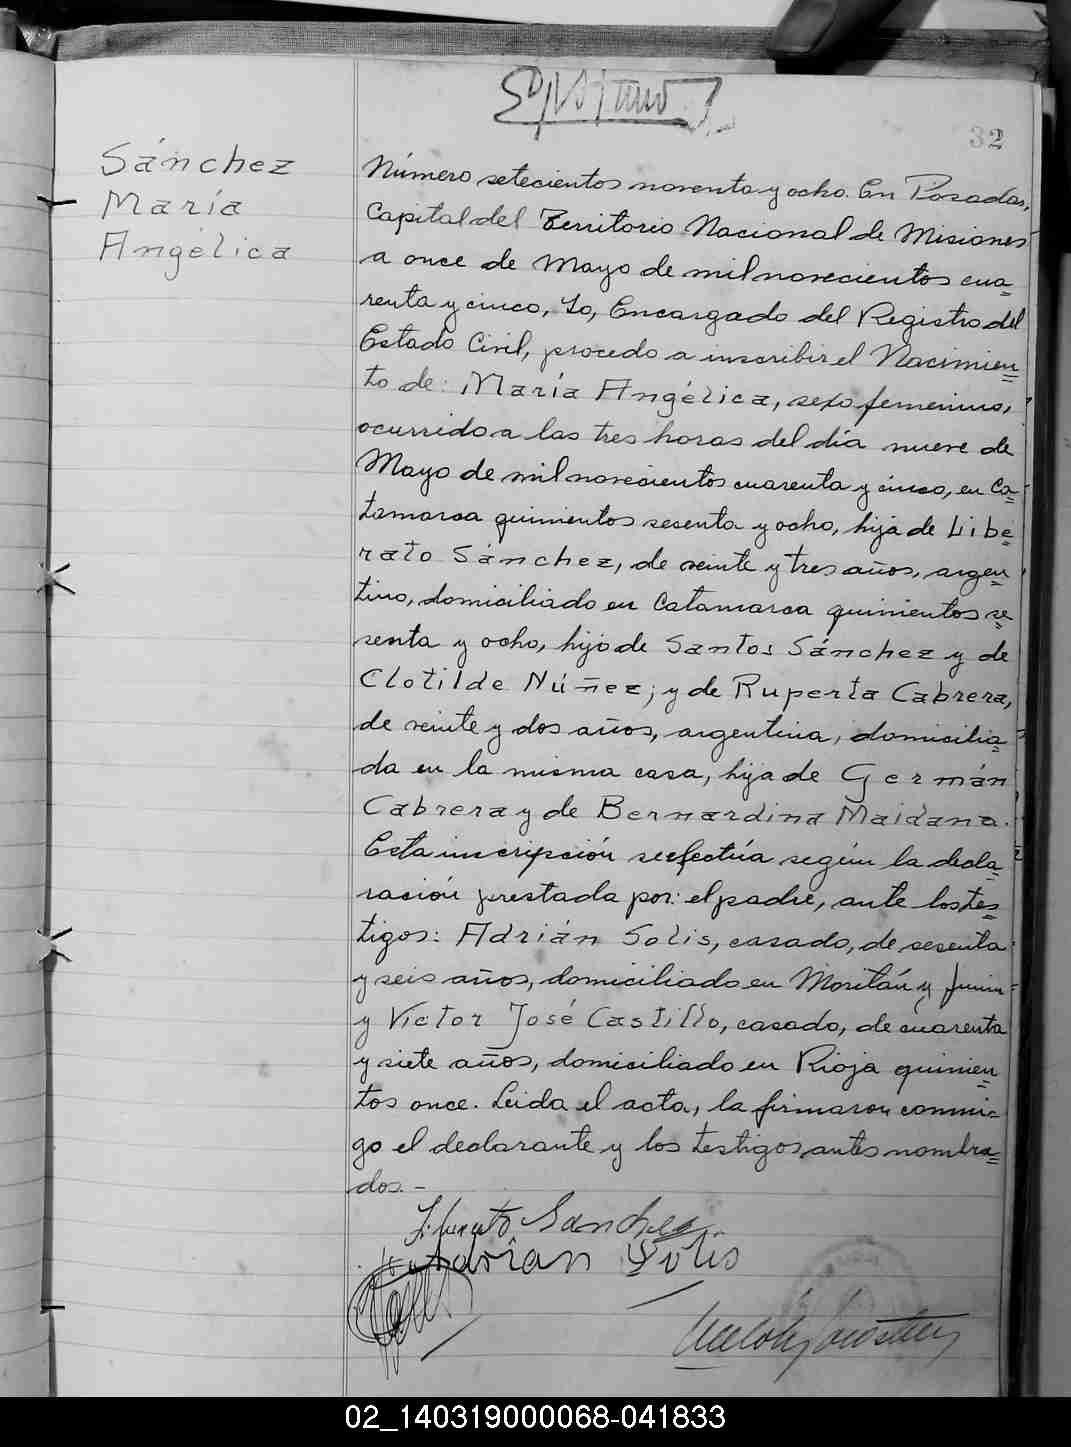 32
Sánchez
María
Angélica
Número setecientos noventa y ocho. En Posadas,
Capital del Territorio Nacional de Misiones
a once de Mayo de mil novecientos cua=
renta y cinco, Yo, Encargado del Registro del
Estado Civil, procedo a inscribir el Nacimien=
to de: María Angélica, sexo femenino,
ocurrido a las tres horas del día nueve de
Mayo de mil novecientos cuarenta y cinco, en Ca=
tamarca quinientos sesenta y ocho, hija de Libe=
rato Sánchez, de veinte y tres años, argen=
tino, domiciliado en Catamarca quinientos se=
senta y ocho, hijo de Santos Sánchez y de
Clotilde Núñez; y de Ruperta Cabrera,
de veinte y dos años, argentina, domicilia=
da en la misma casa, hija de Germán
Cabrera y de Bernardina Maidana.
Esta inscripción se efectúa según la decla=
ración prestada por: el padre, ante los tes=
tigos: Adrián Solis, casado, de sesenta
y seis años, domiciliado en y Junin=
y Victor José Castillo, casado, de cuarenta
y siete años, domiciliado en Rioja quinien=
tos once. Leida el acta, la firmaron conmi=
go el declarante y los testigos antes nombra=
dos.-
Liberato Sanchez
Adrian Solis
02_140319000068-041833